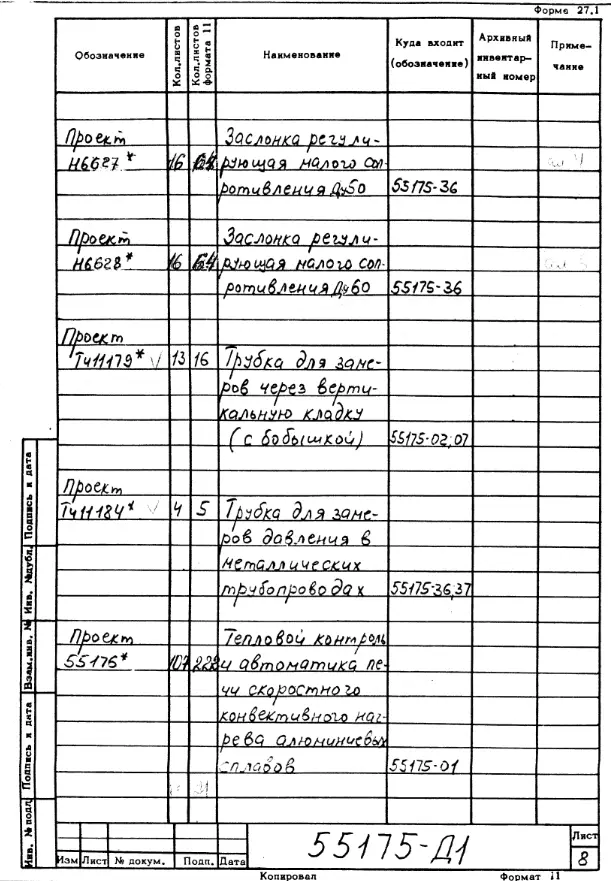 Форма 27.1
Обозначение Кол.листов Кол.листов формата 11 Наименование Куда входит (обозначение) Архивный инвентар- ный номер Приме- чание
Проект Заслонка регули-
Н6627* 16 64 рующая малого соп-
ротивления Ду50 55175-36
Проект Заслонка регули-
Н6628* 16 64 рующая малого соп-
ротивления Ду60 55175-36
Проект
Т411179* 13 16 Трубка для заме-
ров через верти-
кальную кладку
(с бобышкой) 55175-02;07
Проект
Т411184* 4 5 Трубка для заме-
ров давления в
металлических
трубопроводах 55175-36,37
Проект Тепловой контроль
55176* 107 222 и автоматика пе-
чи скоростного
конвективного наг-
рева алюминиевых
сплавов 55175-01
Инв. № подл. Подпись и дата Взам.инв. № Инв. №дубл. Подпись и дата
Изм Лист № докум. Подп. Дата
55175-Д1
Лист
8
Копировал Формат 11